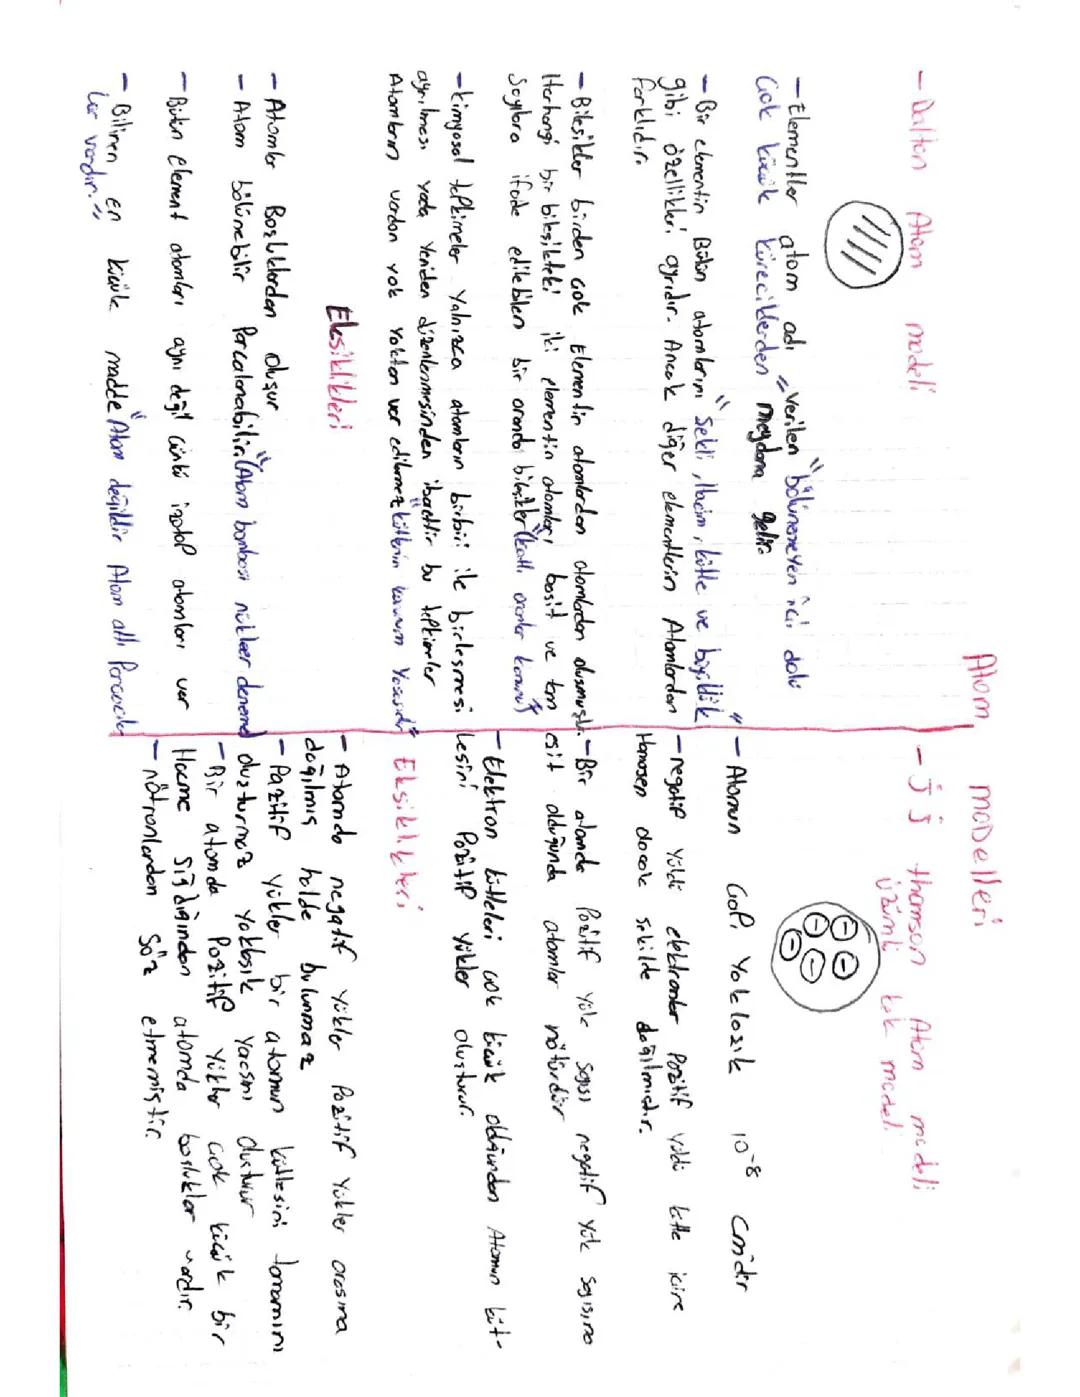 Atom moDelleri
- Dalton Atom modeli
- Elementler atom adı verilen "bölünemeyen içi dolu
çok küçük küreciklerden meydana gelir.
- Bir elementin Bütün atomlarını "Şekli, Hacim, kütle ve büyüklük"
gibi özellikleri aynıdır. Ancak diğer elementlerin Atomlardan
farklıdır.
- Bileşikler birden çok Elementin atomlardan atomlardan oluşmuştur.
Herhangi bir bileşikteki iki elementin atomları basit ve tam
Sayılara ifade edilebilen bir oranda bileşikler (katlı oranlar kanunu)"
- kimyasal tepkimeler Yalnızca atomların birbiri ile birleşmesi
ayrılması yada Yeniden düzenlenmesinden ibarettir bu tepkimeler
Atomların vardan yok Yoktan var edilemez "kütlenin korunum Yasasıdır"
Eksiklikleri
- Atomlar Boşluklardan oluşur
- Atom bölünebilir Parçalanabilir "(Atom bombası nükleer deneme)
- Bütün element atomları aynı değil çünkü izotop atomları var
- Bilinen en küçük madde "Atom değildir Atom altı Parçacık
lar vardır."
- j j thomson Atom modeli
üzümlü kek modeli
- Atomun çapı Yaklaşık 10⁻⁸ cm'dir
- negatif Yüklü elektronlar Pozitif Yüklü kitle içine
Homojen olacak şekilde dağılmıştır.
- Bir atomda Pozitif Yük Sayısı negatif Yük Sayısına
eşit olduğunda atomlar nötürdür
- Elektron kütleleri çok küçük olduğundan Atomun küt-
lesini Pozitif Yükler oluşturur.
Eksiklikleri
- Atomda negatif Yükler Pozitif Yükler arasına
dağılmış halde bulunmaz
- Pozitif Yükler bir atomun kütlesini tamamını
oluşturmaz Yaklaşık Yarısını oluşturur
- Bir atomda Pozitif Yükler çok küçük bir
Hacme sığdığından atomda boşluklar vardır.
- nötronlardan Söz etmemiştir.